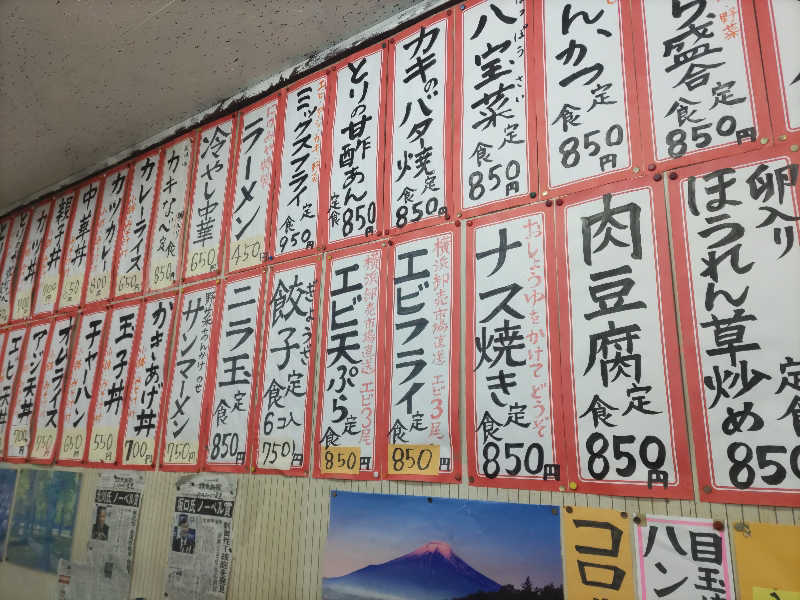 八宝菜定食
はっぽうさい
850円
カキのバタ焼定食
850
とりの甘酢あん定食
850
ミックスフライ定食
950円
ラーメン
450
冷やし中華
650
カキなべ定食
850
カレーライス
650
カツカレー
800
中華丼
親子丼
カツ丼
んかつ定食
850円
盛合定食
野菜
850円
卵入り
ほうれん草炒め
定食
850
肉豆腐定食
850円
おしょうゆをかけてどうぞ
ナス焼き定食
850円
横浜卸売市場直送 エビ3尾
エビフライ定食
850円
横浜卸売市場直送 エビ3尾
エビ天ぷら定食
850円
ぎょうざ
餃子定食
6コ入
750円
ニラ玉定食
850円
サンマーメン
750
かきあげ丼
700
玉子丼
550
チャーハン
オムライス
アジ天丼
エビ天丼
ノーベル賞
ノーベル賞
コロ
目玉
ハン